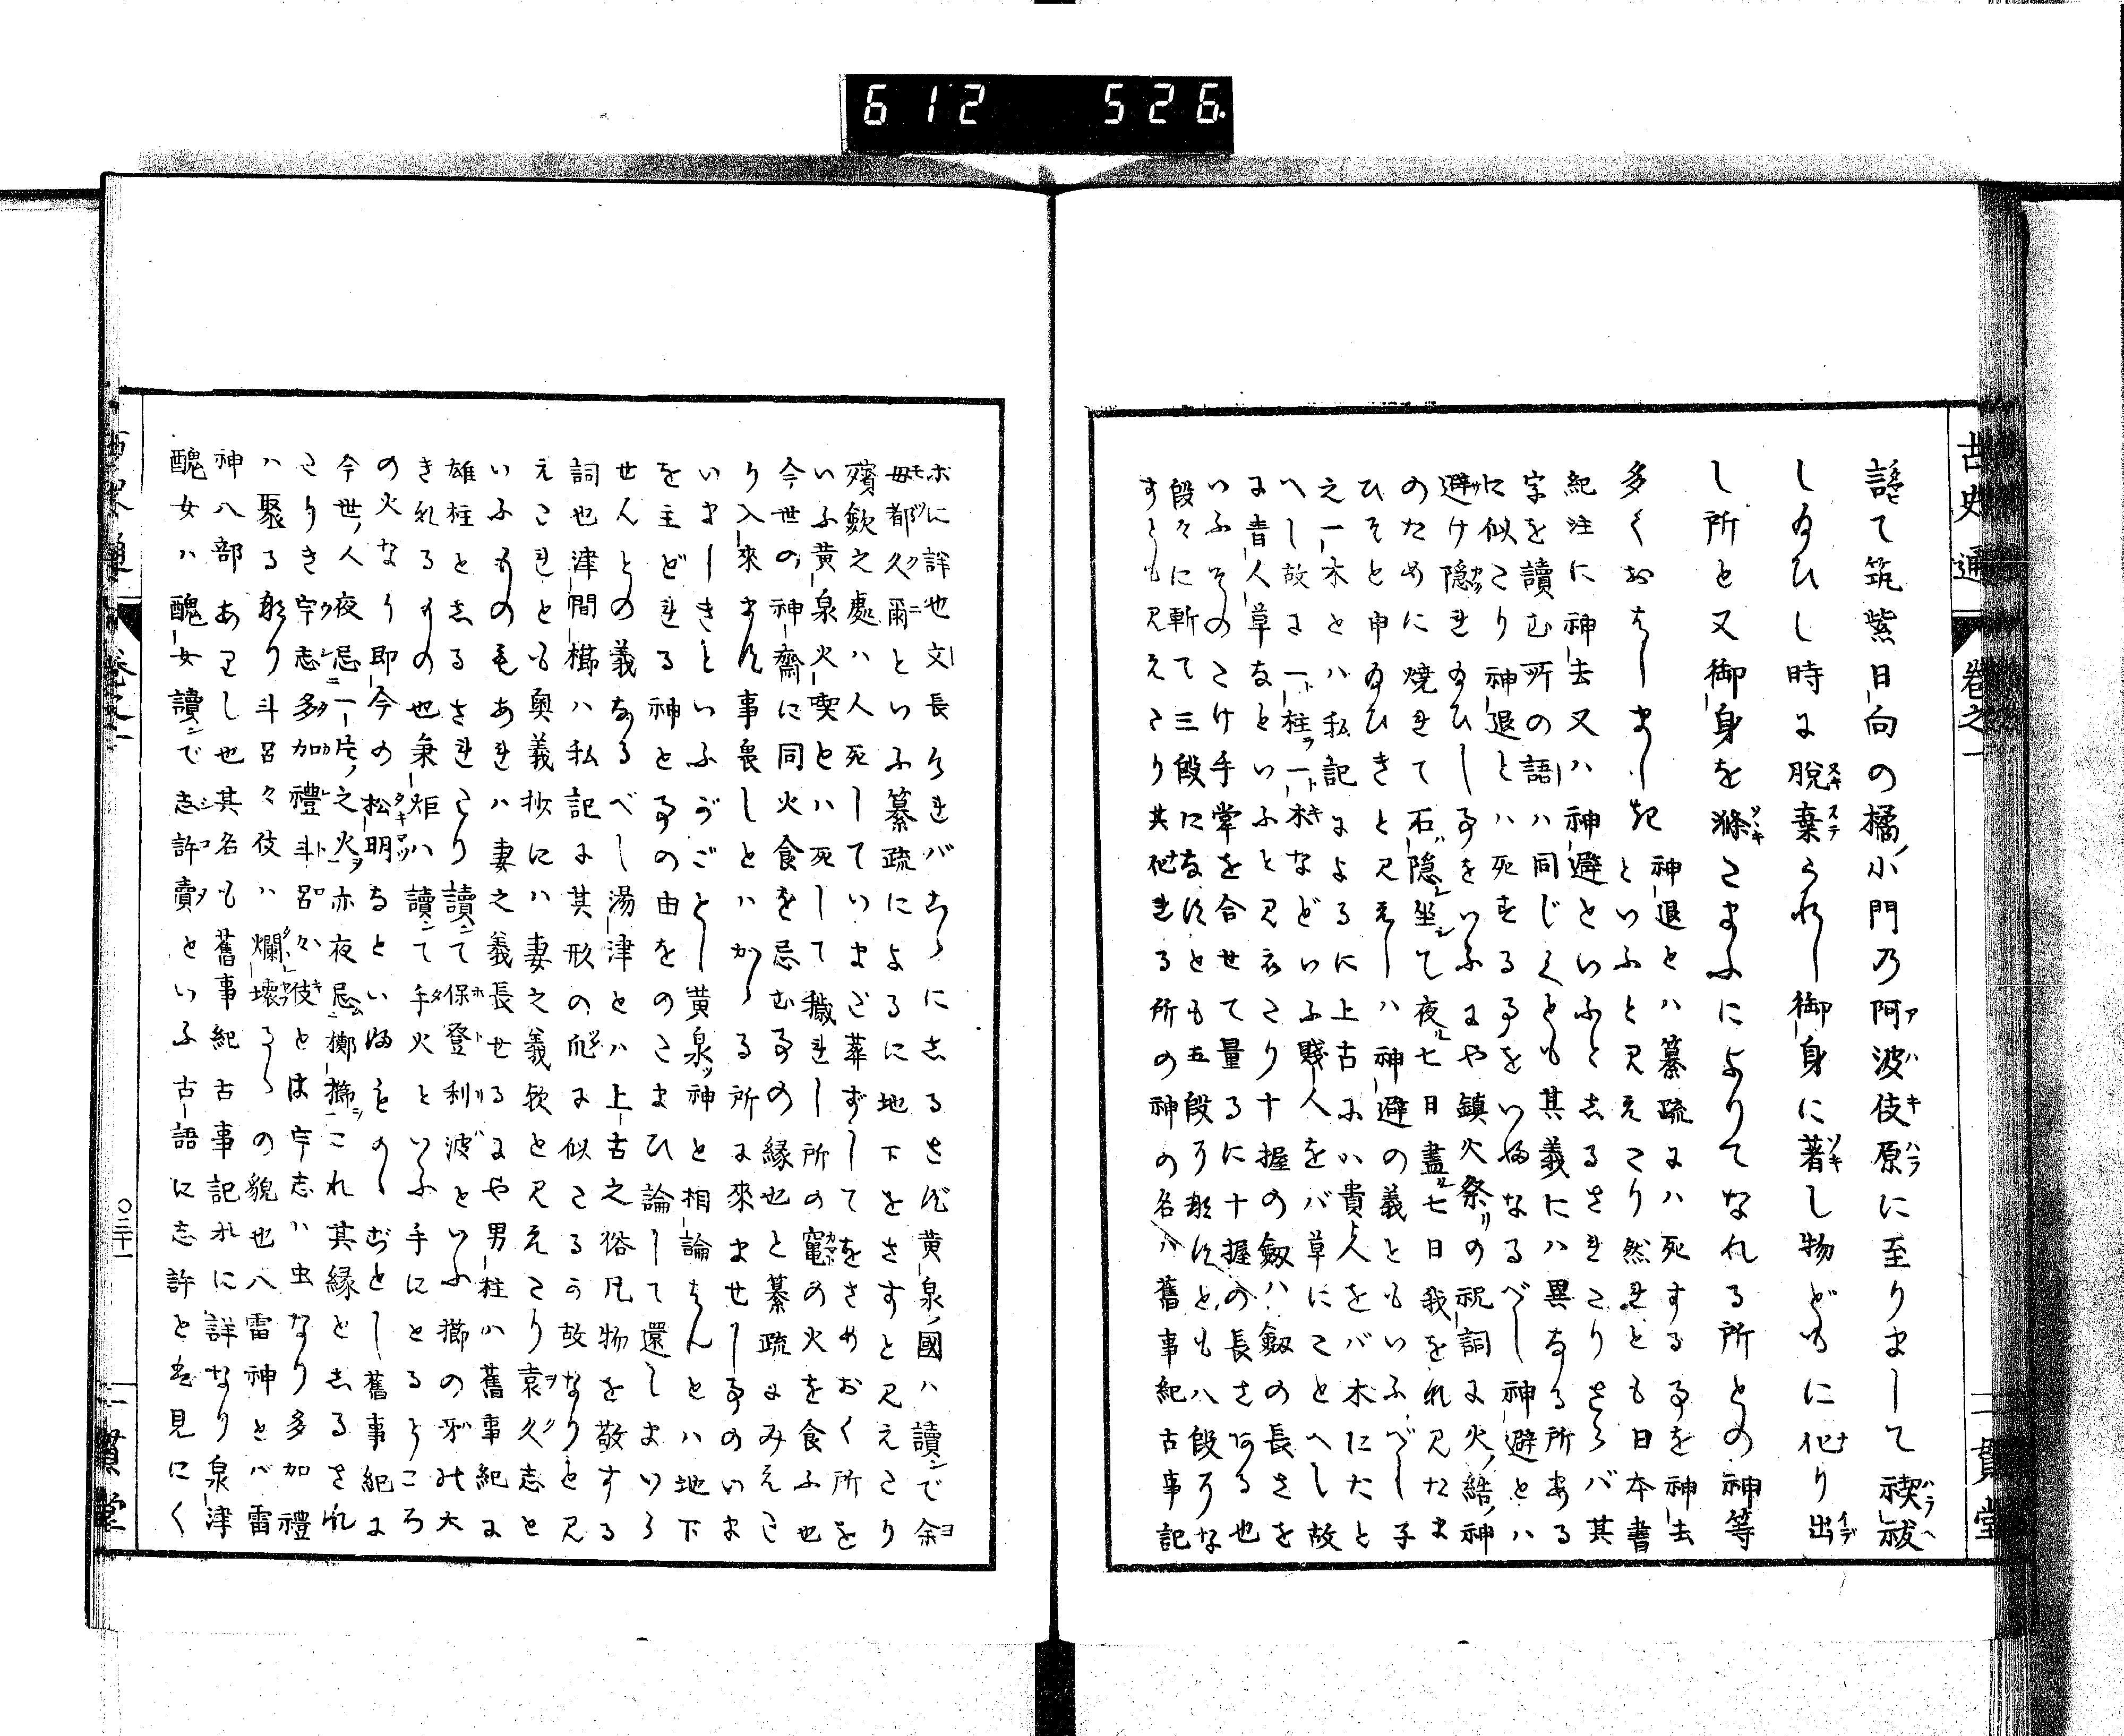 612 526
古史通 卷之一 一貫堂
詣て筑紫日向の橘小門乃阿波伎原に至りまして禊祓
し給ひし時に脱棄られし御身に著し物どもに化り出
し所と又御身を滌たまふによりてなれる所との神等
多くおはしまし起
神退とハ纂疏にハ死するを神去
といふと見えたり然れとも日本書
紀注に神去又ハ神避といふとしるされたりさらバ其
字を讀む所の語ハ同じくとも其義にハ異なる所ある
に似たり神退とハ死する事をいふなるべし神避とハ
避け隱れ給ひし事をいふにや鎮火祭の祝詞に火結神
のために燒れて石隱坐て夜七日晝七日我をれ見たま
ひそと申給ひきと見えしハ神避の義ともいふべし子
之一木とハ私記によるに上古にハ貴人をバ木にたと
へし故に一柱一木などいふ賤人をバ草にたとへし故
に青人草などいふと見えたり十握の劔ハ劔の長さを
いふそのたけ手掌を合せて量るに十握の長さある也
段々に斬て三段になすとも五段に斬すとも八段にな
すとも見えたり其化れる所の神の名ハ舊事紀古事記
ホに詳也文長けれバこゝにしるさず黄泉國ハ讀で余
母都久爾といふ纂疏によるに地下をさすと見えたり
殯歛之處ハ人死していまだ葬ずしてをさめおく所を
いふ黄泉火喫とハ死して穢れし所の竈の火を食ふ也
今世の神齋に同火食を忌む事の縁也と纂疏にみえた
り入來ます事畏しとハかゝる所に來ませし事のいま
いましきといふがごとし黄泉神と相論はんとハ地下
を主どれる神と事の由をのたまひ論して還しまいら
せんとの義なるべし湯津とハ上古之俗凡物を敬する
詞也津間櫛ハ私記に其形の爪に似たるの故なりと見
えたれとも奥義抄にハ妻之義歟と見えたり袁久志と
いふものもあれハ妻之義長せるにや男柱ハ舊事紀に
雄柱としるされたり讀て保登利波といふ櫛の牙の大
きれるもの也秉炬ハ讀て手火といふ手にとるところ
の火なり即今の松明などいふものゝごとし舊事紀に
今世人夜忌一片之火亦夜忌擲櫛これ其縁としるされ
たりき宇志多加禮斗呂々伎とは宇志ハ虫なり多加禮
ハ聚る形り斗呂々伎ハ爛壞るゝの貌也八雷神とバ雷
神八部ありし也其名も舊事紀古事記れに詳なり泉津
醜女ハ醜女讀で志許賣といふ古語に志許と云見にく
古史通 卷之一 〇三十一 一貫堂